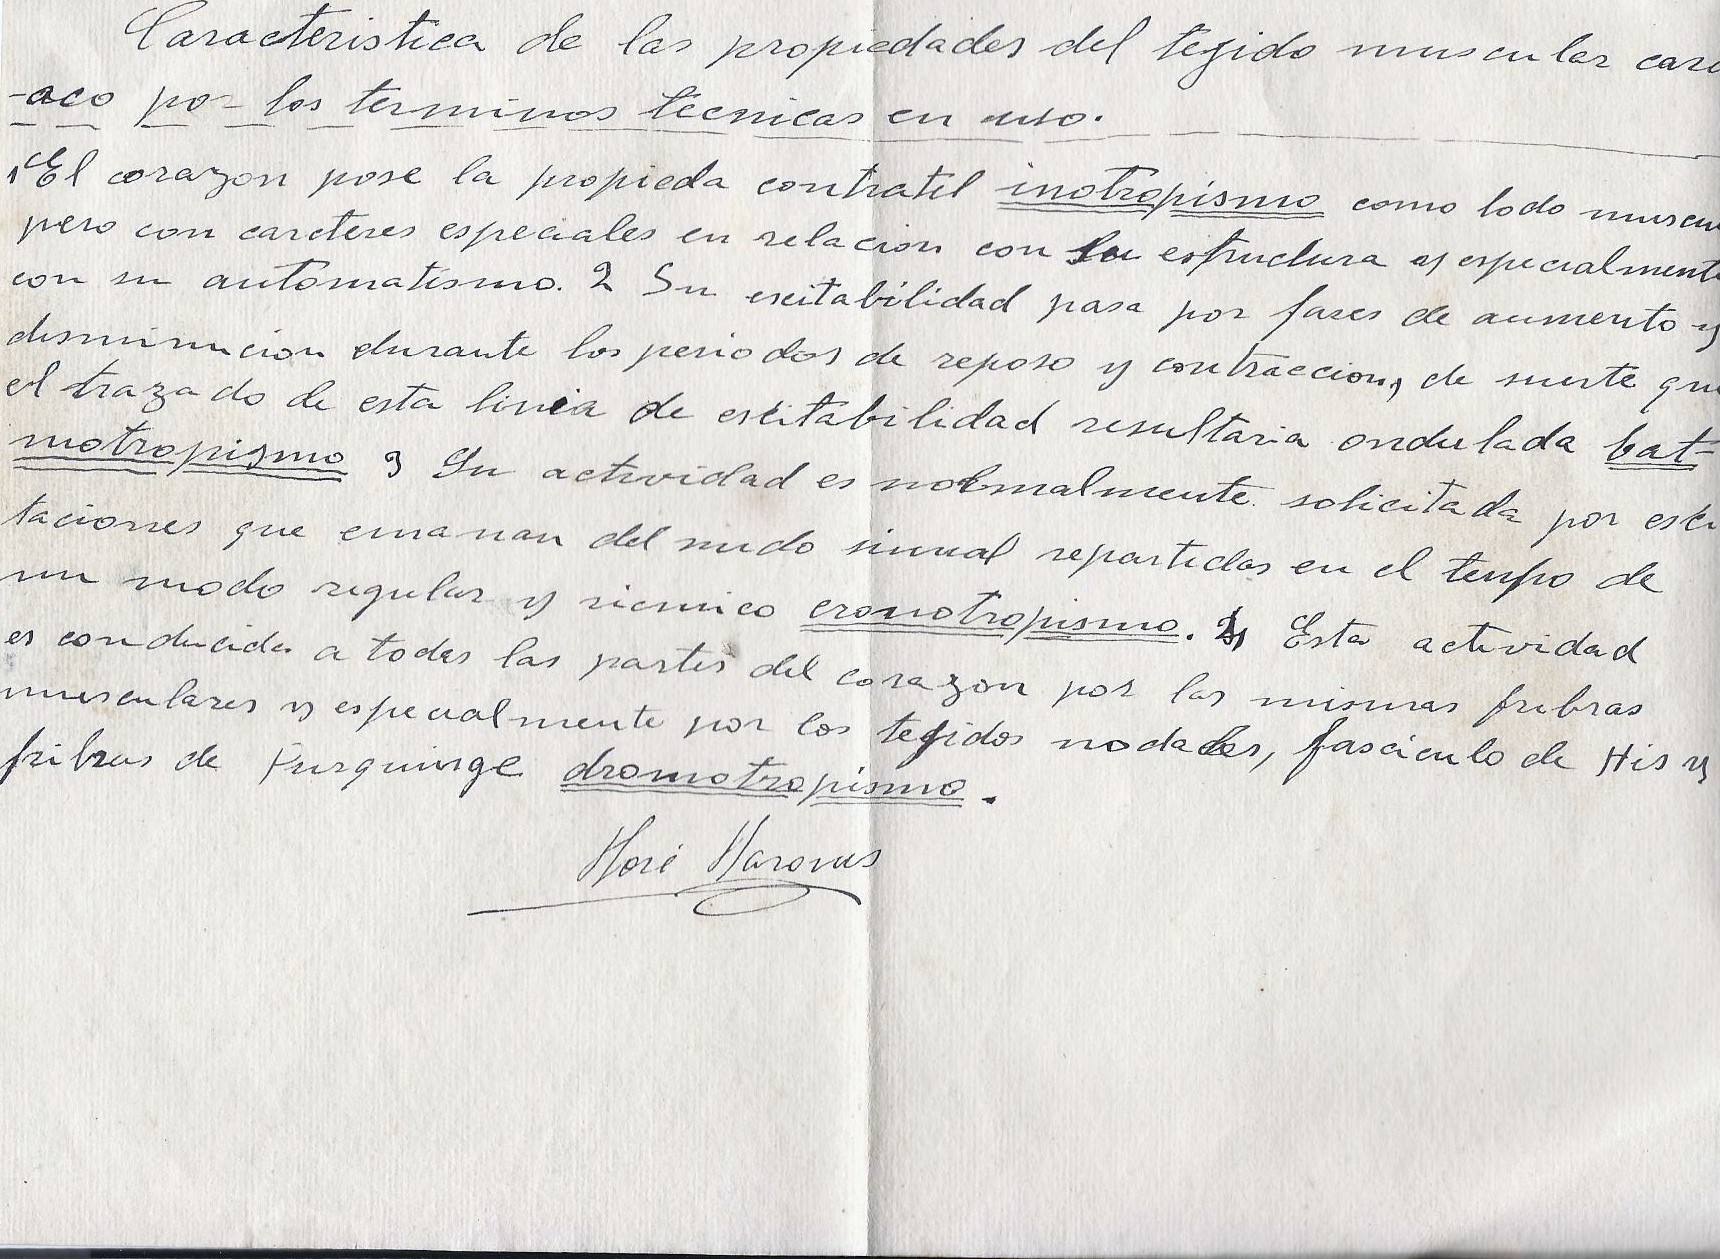 Caracteristica de las propiedades del tejido muscular cardi
-aco por los terminos tecnicas en uso.
1 El corazon pose la propieda contratil inotropismo como todo muscu
pero con carcteres especiales en relacion con su estructura y especialmente
con su automatismo. 2 Su escitabilidad pasa por fases de aumento y
disminucion durante los periodos de reposo y contraccion, de suerte que
el trazado de esta linia de escitabilidad resultaria ondulada bat-
motropismo 3 Su actividad es normalmente solicitada por esci
taciones que emanan del nudo sinual repartidas en el tempo de
un modo regular y ricmico cronotropismo. 4 Esta actividad
es conducida a todas las partes del corazon por las mismas fribras
musculares y especialmente por los tegidos nodales, fasciculo de His y
fribras de Purquinge dromotropismo.
José